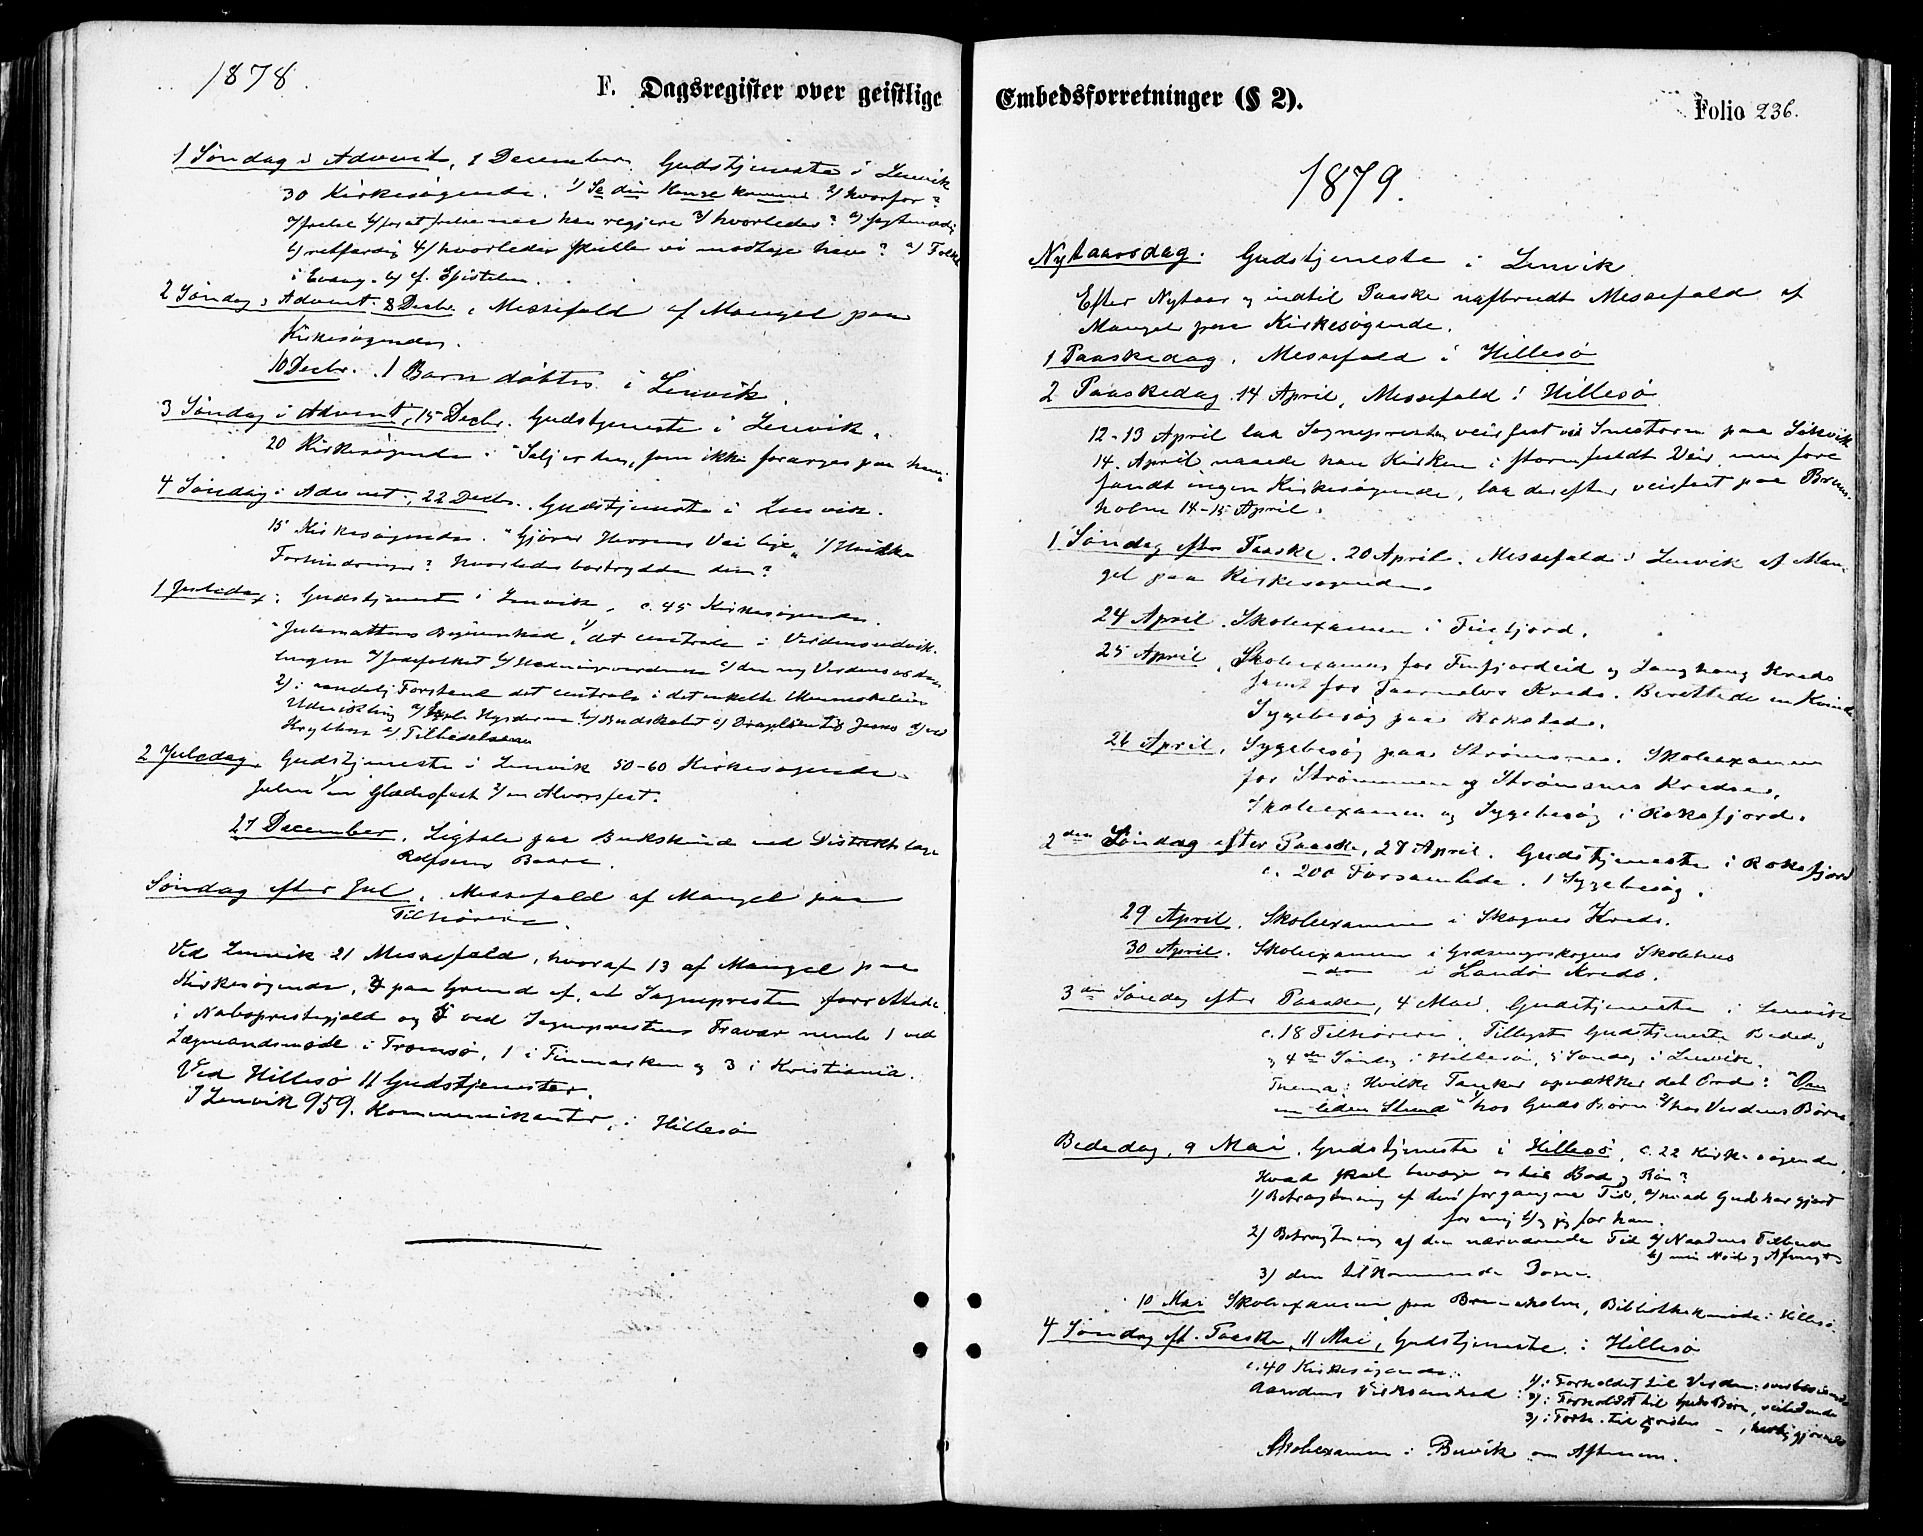 1878.
F. Dagsregister over geistlige
1 Søndag i Advent, 1 December. Gudstjeneste i Lenvik
30 Kirkesøgende. 1/ Se din Konge kommer 2/ hvorfor?
a/ frelse b/ for at frelse maa han regjere 3/ hvorledes? a/ sagtmodig
b/ retfærdig 4/ hvorledes skulle vi modtage ham? a/ Folket
i Evang. b/ cf. Epistelen.
2 Søndag i Advent. 8 Decbr. Messefald af Mangel paa
Kirkesøgende.
10 Decbr. 1 Barn døbtes i Lenvik.
3 Søndag i Advent, 15 Decbr. Gudstjeneste i Lenvik.
20 Kirkesøgende. "Salig er den, som ikke forarges paa ham."
4 Søndag i Advent, 22 Decbr. Gudstjeneste i Lenvik.
15 Kirkesøgende. "Gjører Herrens Vei lige" 1/ Hvilke
Forhindringer? Hvorledes bortrydde dem?
1 Juledag. Gudstjeneste i Lenvik, c. 45 Kirkesøgende.
"Julenattens Begivenhed" 1/ det centrale i Verdensudvik-
lingen a/ Jødefolket b/ Hedningeverdenen c/ den ny Verdens
2/ i aandelig Forstand det centrale i det enkelte Menneskes
Udvikling a/ Hyrderne b/ Budskabet c/ til Jesus d/ ved
Krybben e/ Tilbedelsen
2 Juledag. Gudstjeneste i Lenvik 50-60 Kirkesøgende.
Julen 1/ en Glædesfest 2/ en Alvorsfest.
27 December. Ligtale paa Bukskind ved Distriktslæge
Rolfsens Baare.
Søndag efter Jul. Messefald af Mangel paa
Tilhørere.
Ved Lenvik 21 Messefald, hvoraf 13 af Mangel paa
Kirkesøgende, paa Grund af, at Sognepresten forrettede
i Nabopræstegjeld og 5 ved Sognepresten Fravær nemlig 1 ved
Lægmandsmøde i Tromsø, 1 i Finmarken og 3 i Kristiania.
Ved Hillesø 11 Gudstjenester.
I Lenvik 959 Kommunikanter, i Hillesø
Embedsforretninger (§ 2).
Folio 236.
1879.
Nytaarsdag. Gudstjeneste i Lenvik.
Efter Nytaar og indtil Paaske uafbrudt Messefald af
Mangel paa Kirkesøgende.
1 Paaskedag. Messefald i Hillesø
2 Paaskedag. 14 April, Messefald i Hillesø.
12-13 April laa Sognepresten veirfast ved Snestorm paa Sikvik
14. April naaede han Kirken i stormfuldt Veir, men fore
fandt ingen Kirkesøgende, laa derefter veirfast paa Bruns-
holm 14-15 April.
1 Søndag efter Paaske. 20 April. Messefald i Lenvik af Man-
gel paa Kirkesøgende.
24 April. Skoleexamen i Finfjord.
25 April. Skoleexamen for Finfjordeid og Langhaug Kreds
samt for Kreds. Berettede en Kvinde
Sygebesøg paa
26 April. Sygebesøg paa Strømsnes. Skoleexamen
for Strømmen og Strømsnes Kredse.
Skoleexamen og Sygebesøg i Roksfjord.
2den Søndag efter Paaske, 27 April. Gudstjeneste i Roksfjord
c. 200 Forsamlede. 1 Sygebesøg.
29 April. Skoleexamen i Skognes Kreds.
30 April. Skoleexamen i Skolehus
- do - i Landø Kreds.
3die Søndag efter Paaske, 4 Mai. Gudstjeneste i Lenvik
c. 18 Tilhørere. Tillyst Gudstjeneste Bededag
og 4de Søndag i Hillesø, 5 Søndag i Lenvik.
Thema: Hvilke Tanker opvækker det Ord: "Om
en liden Stund" 1/ hos Guds Børn 2/ hos Verdens Børn.
Bededag, 9 Mai. Gudstjeneste i Hillesø, c. 22 Kirkesøgende.
Hvad skal bevæge os til Bod og Bøn?
1) Betragtning af den forgangne Tid, a/ hvad Gud har gjort
for mig b/ og jeg for ham.
2) Betragtning af den nærværende Tid a/ Naadens Tilbud
b) min Nød og Afmagt
3) den tilkommende Dom.
10 Mai Skoleexamen paa Brunsholm, Bibliothekmøde i Hillesø.
4 Søndag eft. Paaske, 11 Mai, Gudstjeneste i Hillesø
c. 40 Kirkesøgende.
Aandens Virksomhed 1) i Forholdet til Verden: overbevisende
2) i Forholdet til Guds Børn, veiledende
3) i Forh. til Kristus –, herliggjørende
Skoleexamen i Buvik om Aftenen.